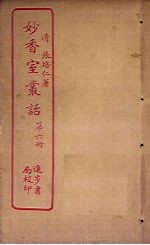 清 張培仁著
妙香室叢話
第六冊
進步書
局校印